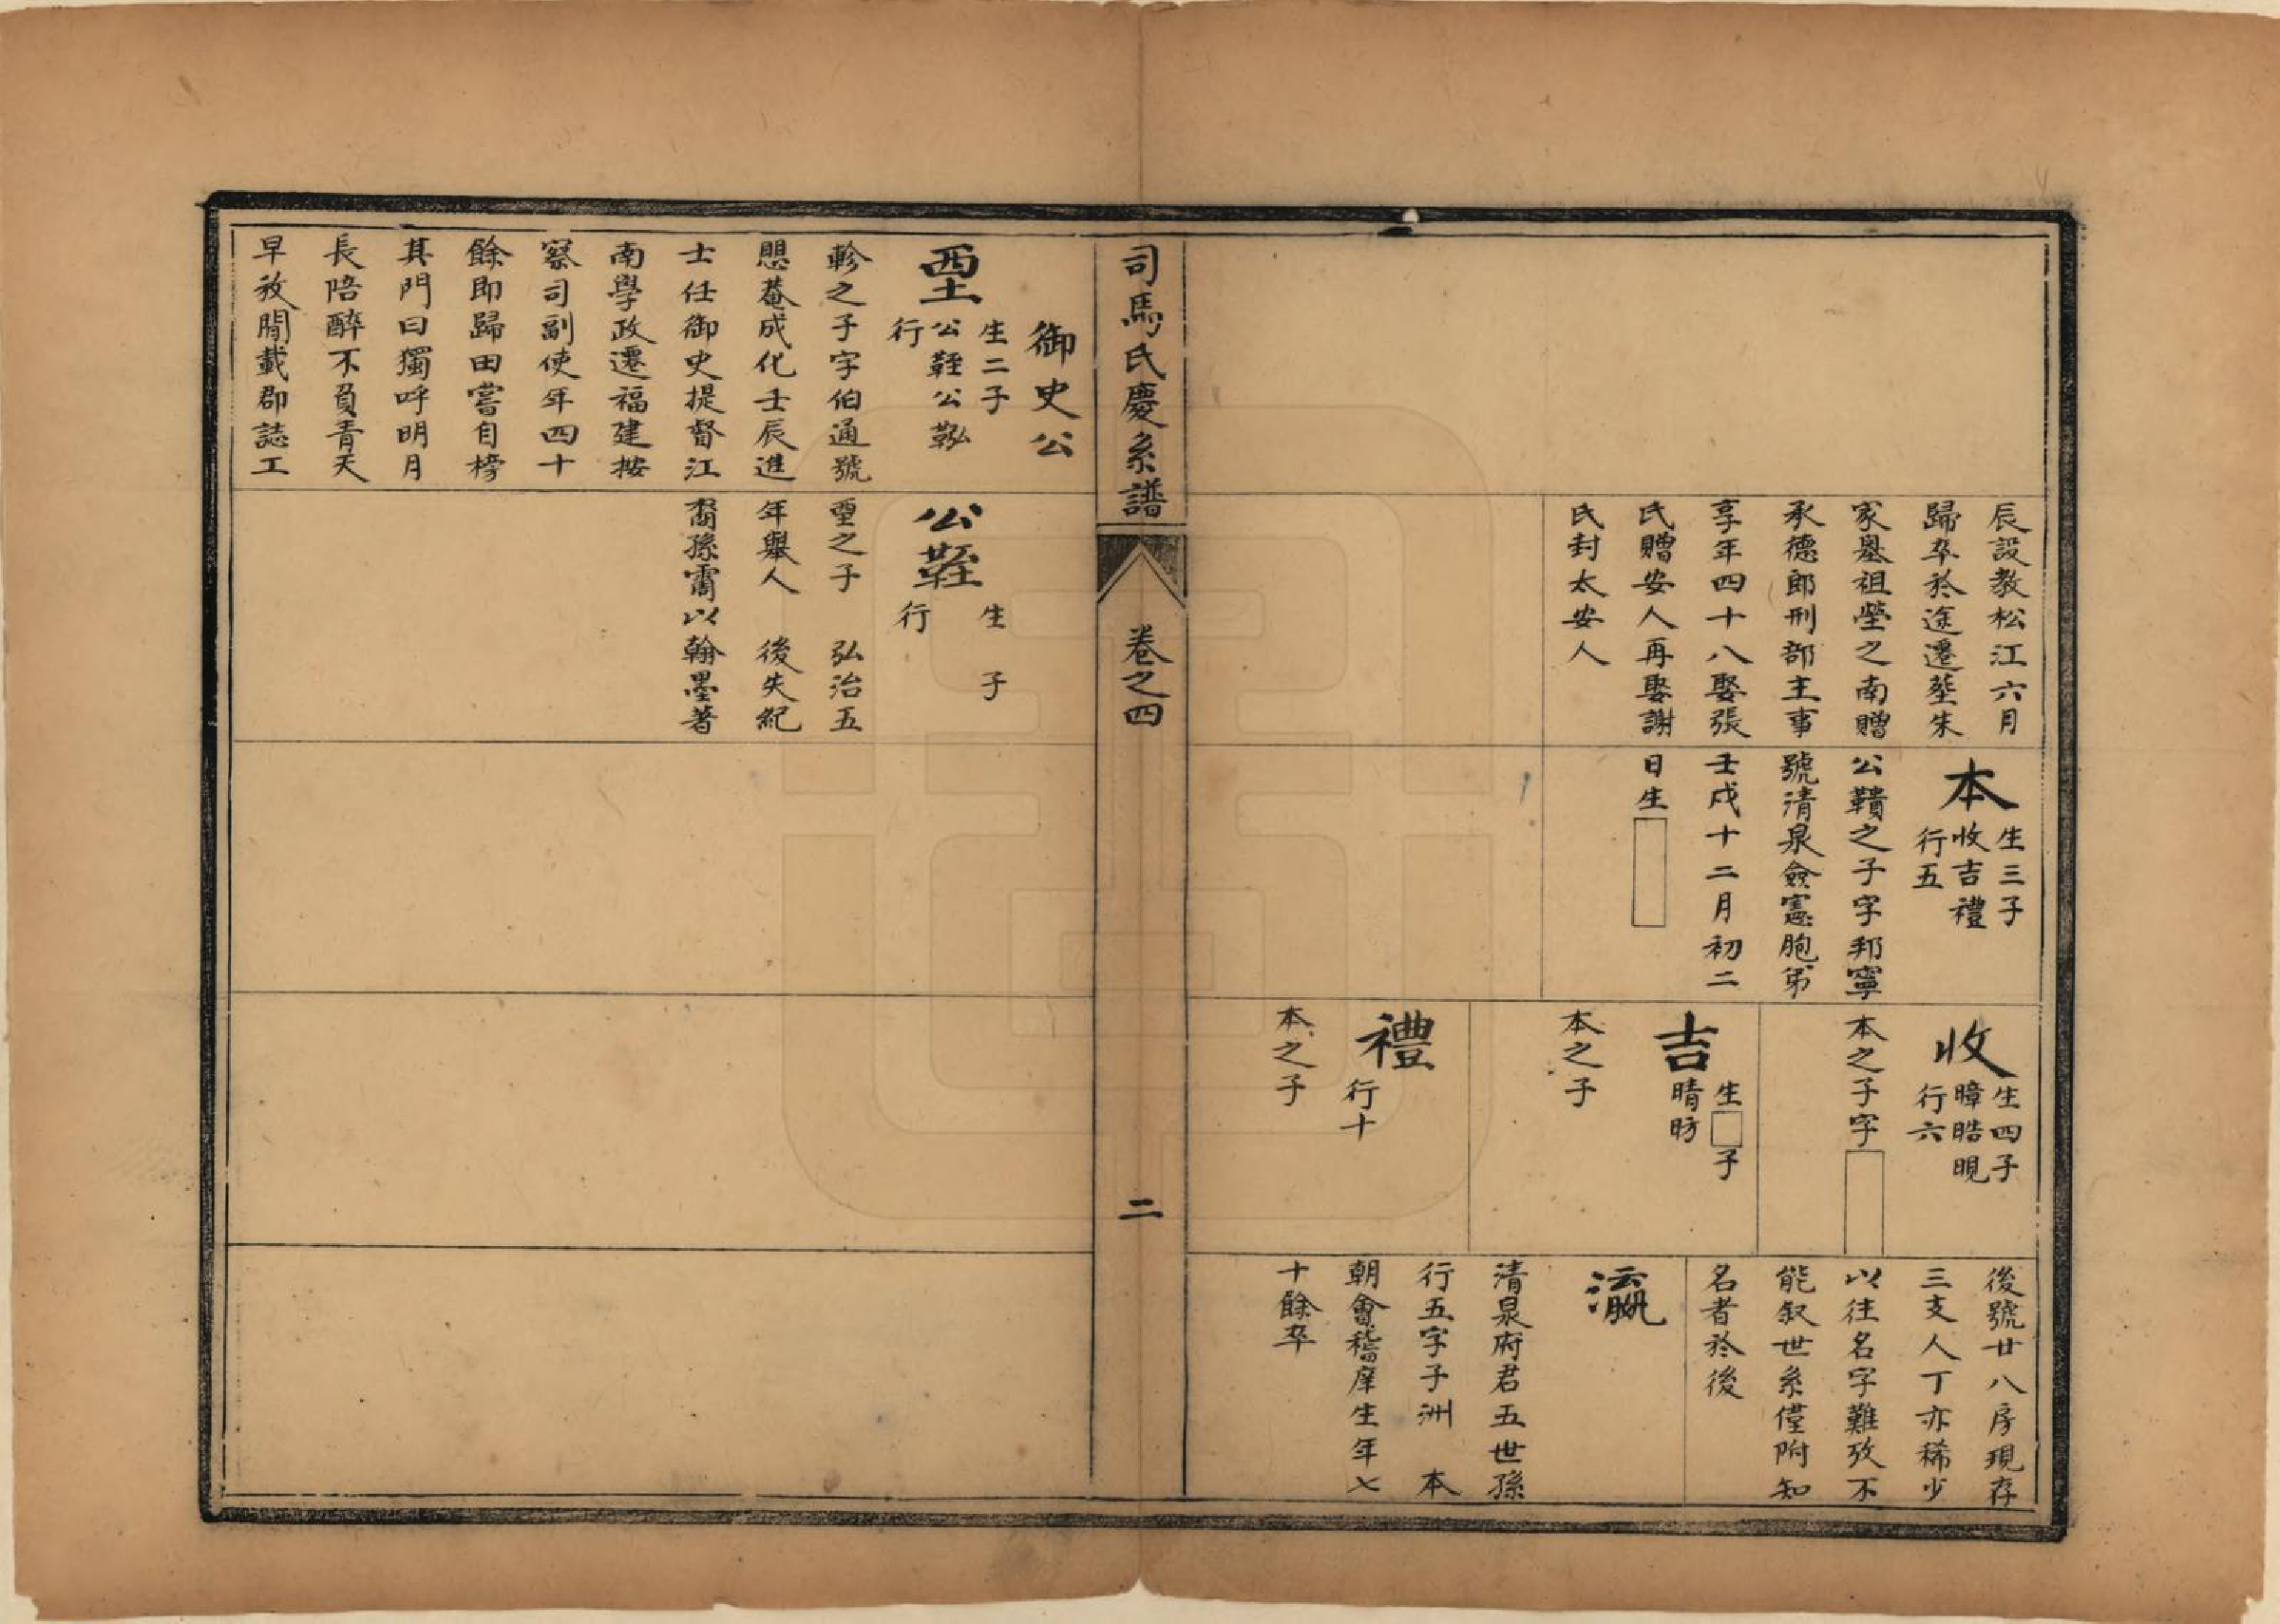 辰設教松江六月
歸卒於途遷塟朱
家嶴祖塋之南贈
承德郎刑部主事
享年四十八娶張
氏贈安人再娶謝
氏封太安人
本
生三子
收吉禮
行五
公鞼之子字邦寧
號清泉僉憲胞弟
壬戌十二月初二
日生
收
生四子
暲晧晛
行六
本之子字
吉
生□子
晴昉
本之子
禮
行十
本之子
後號廿八房現存
三支人丁亦稀少
以往名字難攷不
能叙世系僅附知
名者於後
瀛
清泉府君五世孫
行五字子洲 本
朝會稽庠生年七
十餘卒
司馬氏慶系譜
卷之四
二
御史公
垔
生二子
公鞋公鞃
行
軫之子字伯通號
思菴成化壬辰進
士任御史提督江
南學政遷福建按
察司副使年四十
餘即歸田嘗自榜
其門曰獨呼明月
長陪醉不負青天
早放閒載郡誌工
公
生 子
行
垔之子 弘治五
年舉人 後失紀
裔孫霌以翰墨著